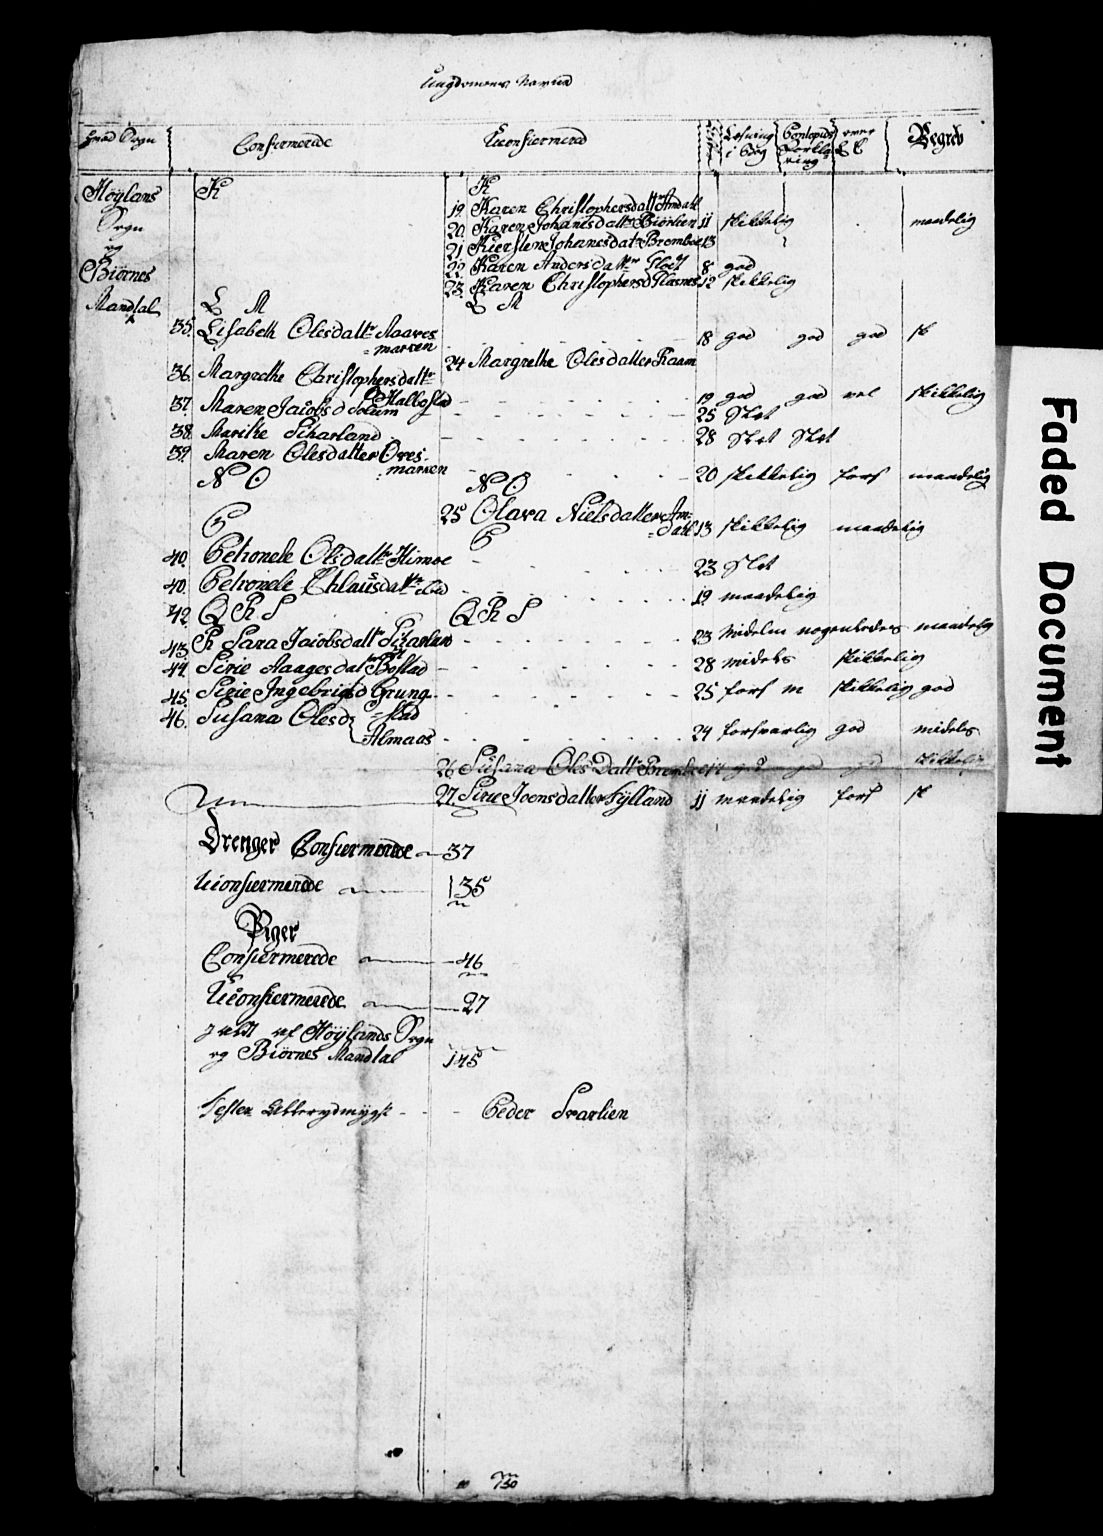 Ungdomens Navne
hvad Sogn Confirmerede Uconfirmered Læsning i Bog Begreb
Høylans Sogn og Biørnes Mandtal
K K
19. Karen Christophersdattr Amdahl
20. Karen Johanesdattr Biørlien 11 skikkelig maadelig
21. Kierslen Johanesdatr Bremboe 13
22. Karen Andersdattr 8 god
23. Karen Christophersd Glasnes 12 skikkelig
L M L M
35. Lisabeth Olesdattr Aaarres marken 18 god god god sk
24 Margrethe Olesdatter Raam
36. Margrethe Christophersdattr Halbostad 19 god god vel skikkelig
37. Maren Jacobsd Solum 25 Slet
38. Marike Scharland 28 Slet Slet
39. Maren Olesdatter Ores marken 20 skikkelig fors maadelig
N O N O
25 Olava Nielsdatter Am dahl 13 skikkelig maadelig
P P
40. Petronele Olesdattr Himoe 23 Slet
40. Petronele Chlausdattr 19 maadelig
42. Q R S Q R S
43. R Sara Jacobsdattr Scharland 23 Midelm nogenledes maadelig
44. Sirie Aaagesdatr Bostad 28 midels skikkelig
45. Sirie Ingebrigsd Grung stad 25 fors m skikkelig god
46. Susana Olesd Almaas 24 forsvarlig god midels
26 Susana Oles Dattr skikkelig
27. Sirie Joensdatter Sylland 11 maadelig fors sk
Drenger Confirmerede 37
Uconfirmerede 35
Piger
Confirmerede 46
Uconfirmerede 27
af Høylands Sogn
og Biørnes Mandtal 145
Tester Allerydmygst Peder Svarlien
Faded Document